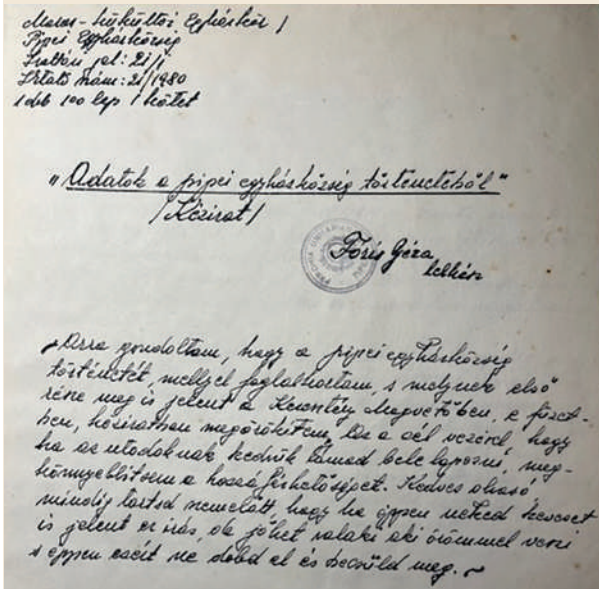 Maros-Küküllői Egyházkör /
Pipei Egyházközség
Leltári jel: 2i/j
Iktató szám: 2i/1980
1 deb 100 lap 1 kötet
"Adatok a pipei egyházközség történetéből"
/Kézirat/
Fóris Géza
lelkész
„Arra gondoltam, hogy a pipei egyházközség
történetét, mellyel foglalkoztam, s melynek első
része meg is jelent a Keresztény Magvetőben, e füzet-
ben, kéziratban megörökítem. Az a cél vezérel, hogy
ha az utódoknak kedvük támad bele lapozni, meg-
könnyebbítsem a hozzáférhetőséget. Kedves olvasó,
mindig tartsd szemelőtt, hogy ha éppen neked keveset
is jelent ez irás, de jöhet valaki aki örömmel veszi
s éppen ezért ne dobd el és becsüld meg.”